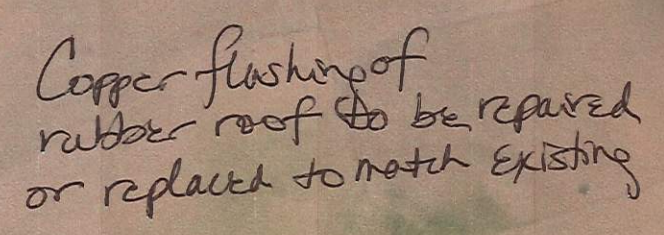 Copper flashing of
rubber roof to be repaired
or replaced to match existing